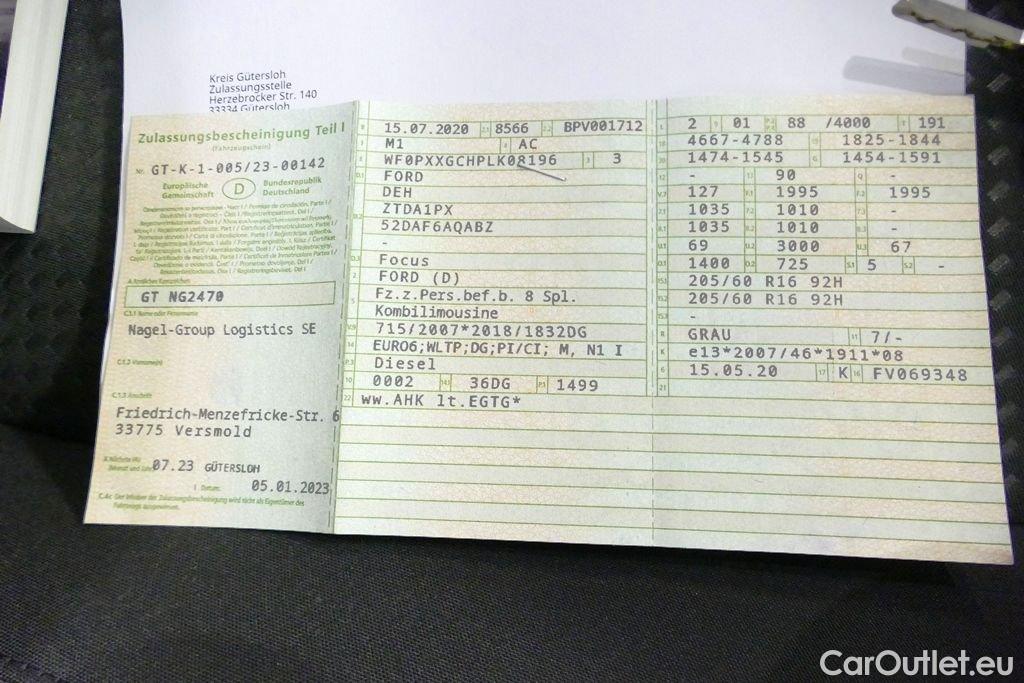 Kreis Gütersloh
Zulassungsstelle
Herzebrocker Str. 140
33334 Gütersloh
Zulassungsbescheinigung Teil I
(Fahrzeugschein)
Nr. GT-K-1-005/23-00142
Europäische Gemeinschaft D Bundesrepublik Deutschland
A Amtliches Kennzeichen
GT NG2470
C.1.1 Name oder Firmenname
Nagel-Group Logistics SE
C.1.2 Vorname(n)
C.1.3 Anschrift
Friedrich-Menzefricke-Str. 6
33775 Versmold
Nächste HU
Monat und Jahr 07.23 GÜTERSLOH
I Datum: 05.01.2023
C.4c Der Inhaber der Zulassungsbescheinigung wird nicht als Eigentümer des
Fahrzeugs ausgewiesen.
B 15.07.2020 2.1 8566 2.2 BPV001712
J M1 4 AC
E WF0PXXGCHPLK08196 3 3
D.1 FORD
DEH
D.2 ZTDA1PX
52DAF6AQABZ
-
D.3 Focus
2 FORD (D)
5 Fz.z.Pers.bef.b. 8 Spl.
Kombilimousine
V.9 715/2007*2018/1832DG
14 EURO6;WLTP;DG;PI/CI; M, N1 I
P.3 Diesel
10 0002 14.1 36DG P.1 1499
22 ww.AHK lt.EGTG*
L 2 9 01 P.2 88 /4000 T 191
18 4667-4788 19 1825-1844
20 1474-1545 G 1454-1591
12 - 13 90 Q -
V.7 127 F.1 1995 F.2 1995
7.1 1035 7.2 1010 7.3 -
8.1 1035 8.2 1010 8.3 -
U.1 69 U.2 3000 U.3 67
O.1 1400 O.2 725 S.1 5 S.2 -
15.1 205/60 R16 92H
15.2 205/60 R16 92H
15.3 -
R GRAU 11 7/-
K e13*2007/46*1911*08
6 15.05.20 17 K 16 FV069348
21
CarOutlet.eu